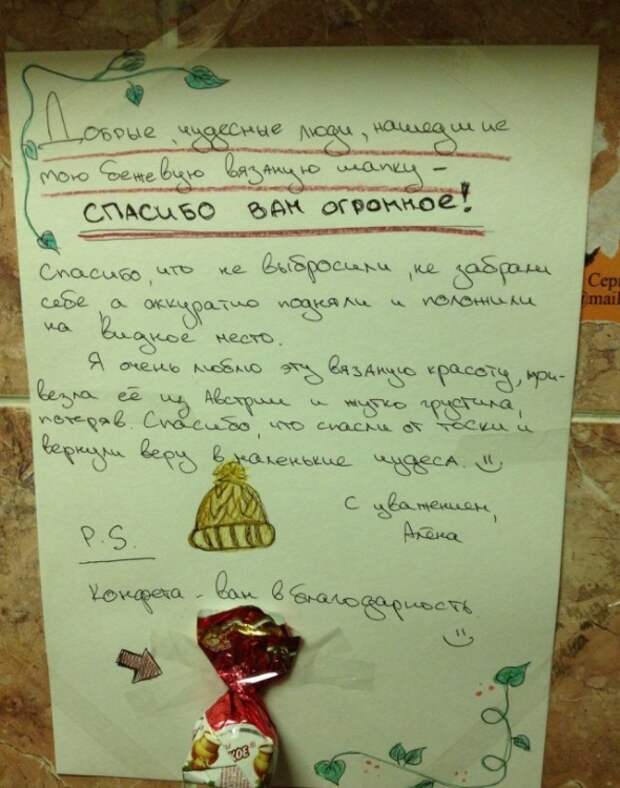 Добрые, чудесные люди, нашедшие
мою бежевую вязаную шапку –
СПАСИБО ВАМ ОГРОМНОЕ!
Спасибо, что не выбросили, не забрали
себе, а аккуратно подняли и положили
на видное место.
Я очень люблю эту вязаную красоту, при-
везла её из Австрии и жутко грустила,
потеряв. Спасибо, что спасли от тоски и
вернули веру в маленькие чудеса.
С уважением,
Алёна
P.S.
Конфета - вам в благодарность
Серг
mail
КОЕ